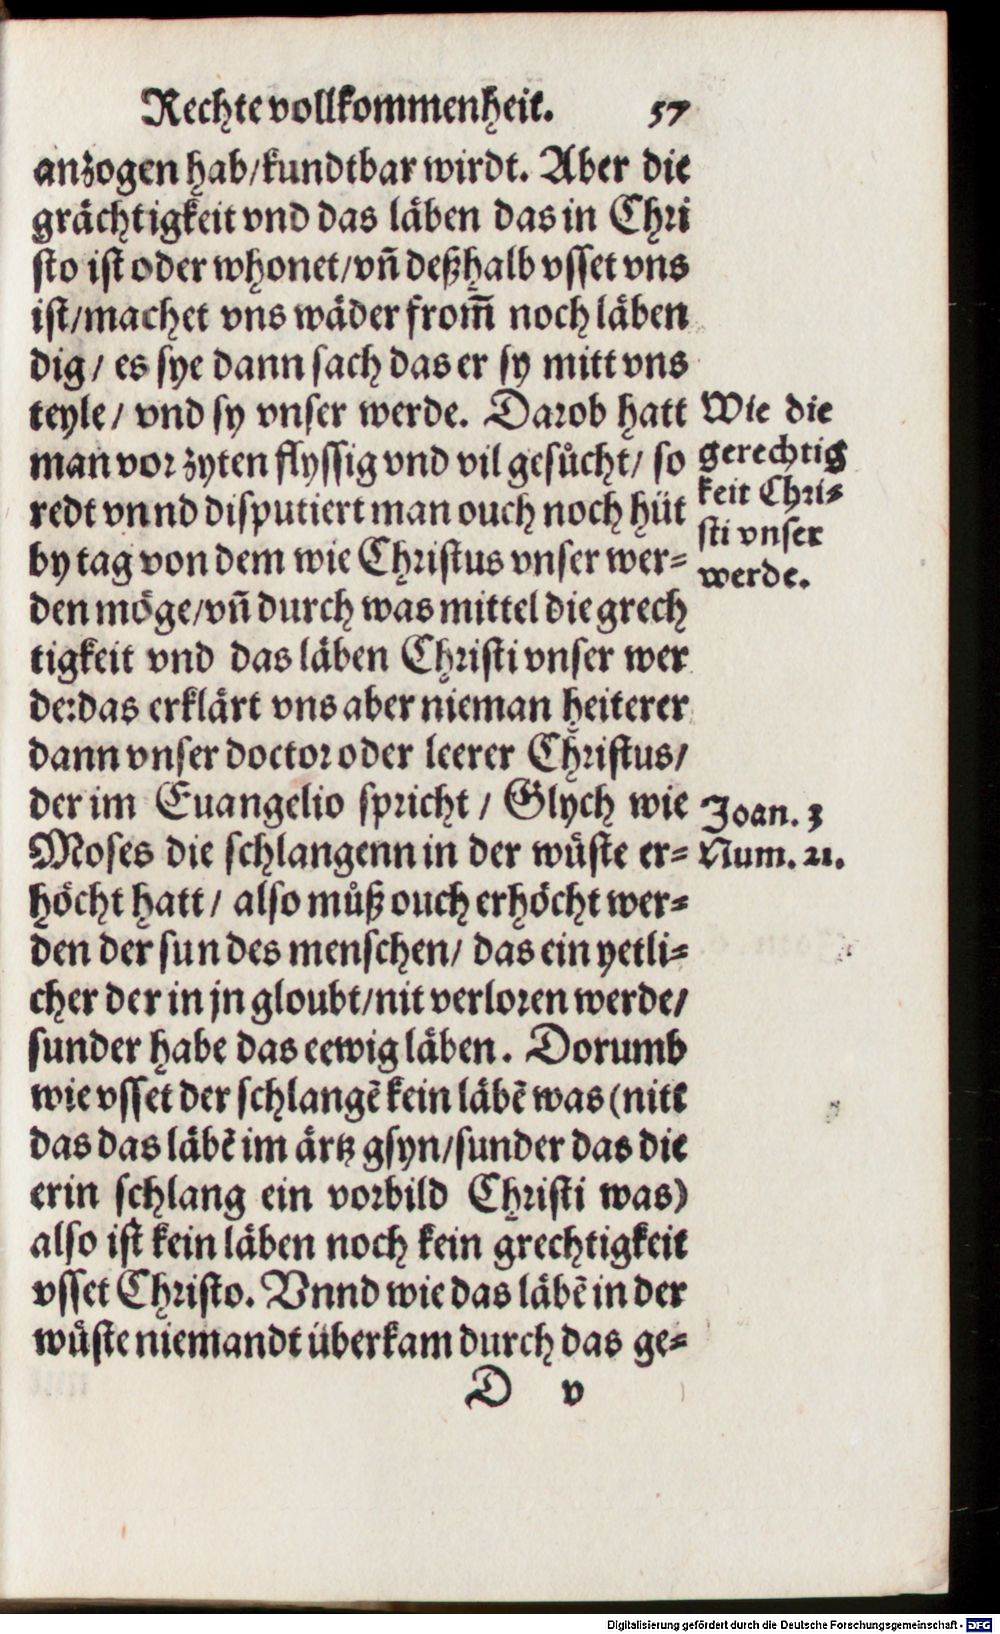 Rechte vollkommenheit. 57
anzogen hab/kundtbar wirdt. Aber die
grächtigkeit vnd das läben das in Chri
sto ist oder whonet/vn̄ deßhalb vsset vns
ist/machet vns wäder from̄ noch läben
dig/ es sye dann sach das er sy mitt vns
teyle/ vnd sy vnser werde. Darob hatt
man vor zyten flyssig vnd vil gesůcht/ so
redt vnnd disputiert man ouch noch hüt
by tag von dem wie Christus vnser wer-
den möge/vn̄ durch was mittel die grech
tigkeit vnd das läben Christi vnser wer
de:das erklärt vns aber nieman heiterer
dann vnser doctor oder leerer Christus/
der im Euangelio spricht / Glych wie
Moses die schlangenn in der wüste er-
höcht hatt/ also můß ouch erhöcht wer-
den der sun des menschen/ das ein yetli-
cher der in jn gloubt/nit verloren werde/
sunder habe das eewig läben. Dorumb
wie vsset der schlangē kein läbē was (nitt
das das läbē im ärtz gsyn/sunder das die
erin schlang ein vorbild Christi was)
also ist kein läben noch kein grechtigkeit
vsset Christo. Vnnd wie das läbē in der
wüste niemandt überkam durch das ge-
D v
Wie die
gerechtig
keit Chri-
sti vnser
werde.
Joan. 3
Num. 21.
Digitalisierung gefördert durch die Deutsche Forschungsgemeinschaft - DFG